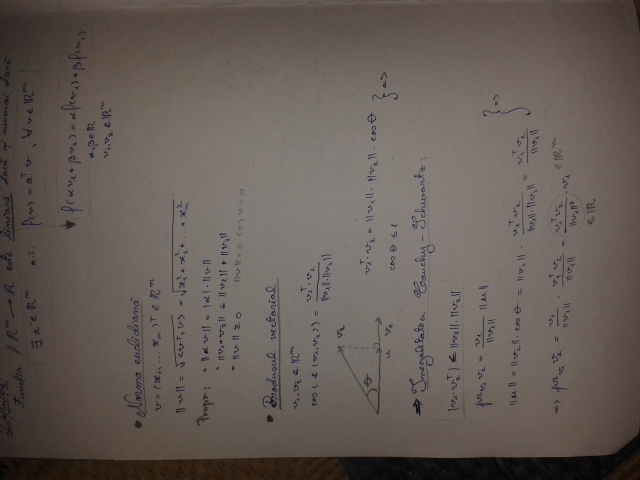 Funcția f: ℝⁿ → ℝ este liniară dacă și numai dacă
∃ a ∈ ℝⁿ a.î. f(v) = aᵀv, ∀ v ∈ ℝⁿ
f(αv₁ + βv₂) = αf(v₁) + βf(v₂)
α, β ∈ ℝ
v₁, v₂ ∈ ℝⁿ
• Norma euclidiană
v = (x₁, ... xₙ)ᵀ ∈ ℝⁿ
||v|| = √(vᵀv) = √(x₁² + x₂² + ... + xₙ²)
Propr: • ||αv|| = |α|·||v||
• ||v₁+v₂|| ≤ ||v₁|| + ||v₂||
• ||v|| ≥ 0 ||v|| = 0 v = 0
• Produsul vectorial
v₁, v₂ ∈ ℝⁿ
cos(∢(v₁,v₂)) = v₁ᵀv₂ / (||v₁||·||v₂||)
θ
u v₁ v₂
v₁ᵀ·v₂ = ||v₁||·||v₂||·cosθ
cosθ ≤ 1 } =>
=> Inegalitatea Cauchy-Schwartz:
|v₁·v₂ᵀ| ≤ ||v₁||·||v₂||
pr v₁ v₂ = v₁/||v₁|| · ||u||
||u|| = ||v₂||·cosθ = ||v₂|| · v₁ᵀv₂/(||v₁||·||v₂||) = v₁ᵀv₂/||v₁|| } =>
=> pr v₁ v₂ = v₁/||v₁|| · v₁ᵀv₂/||v₁|| = v₁ᵀv₂/||v₁||² · v₁ ∈ ℝⁿ
∈ ℝ